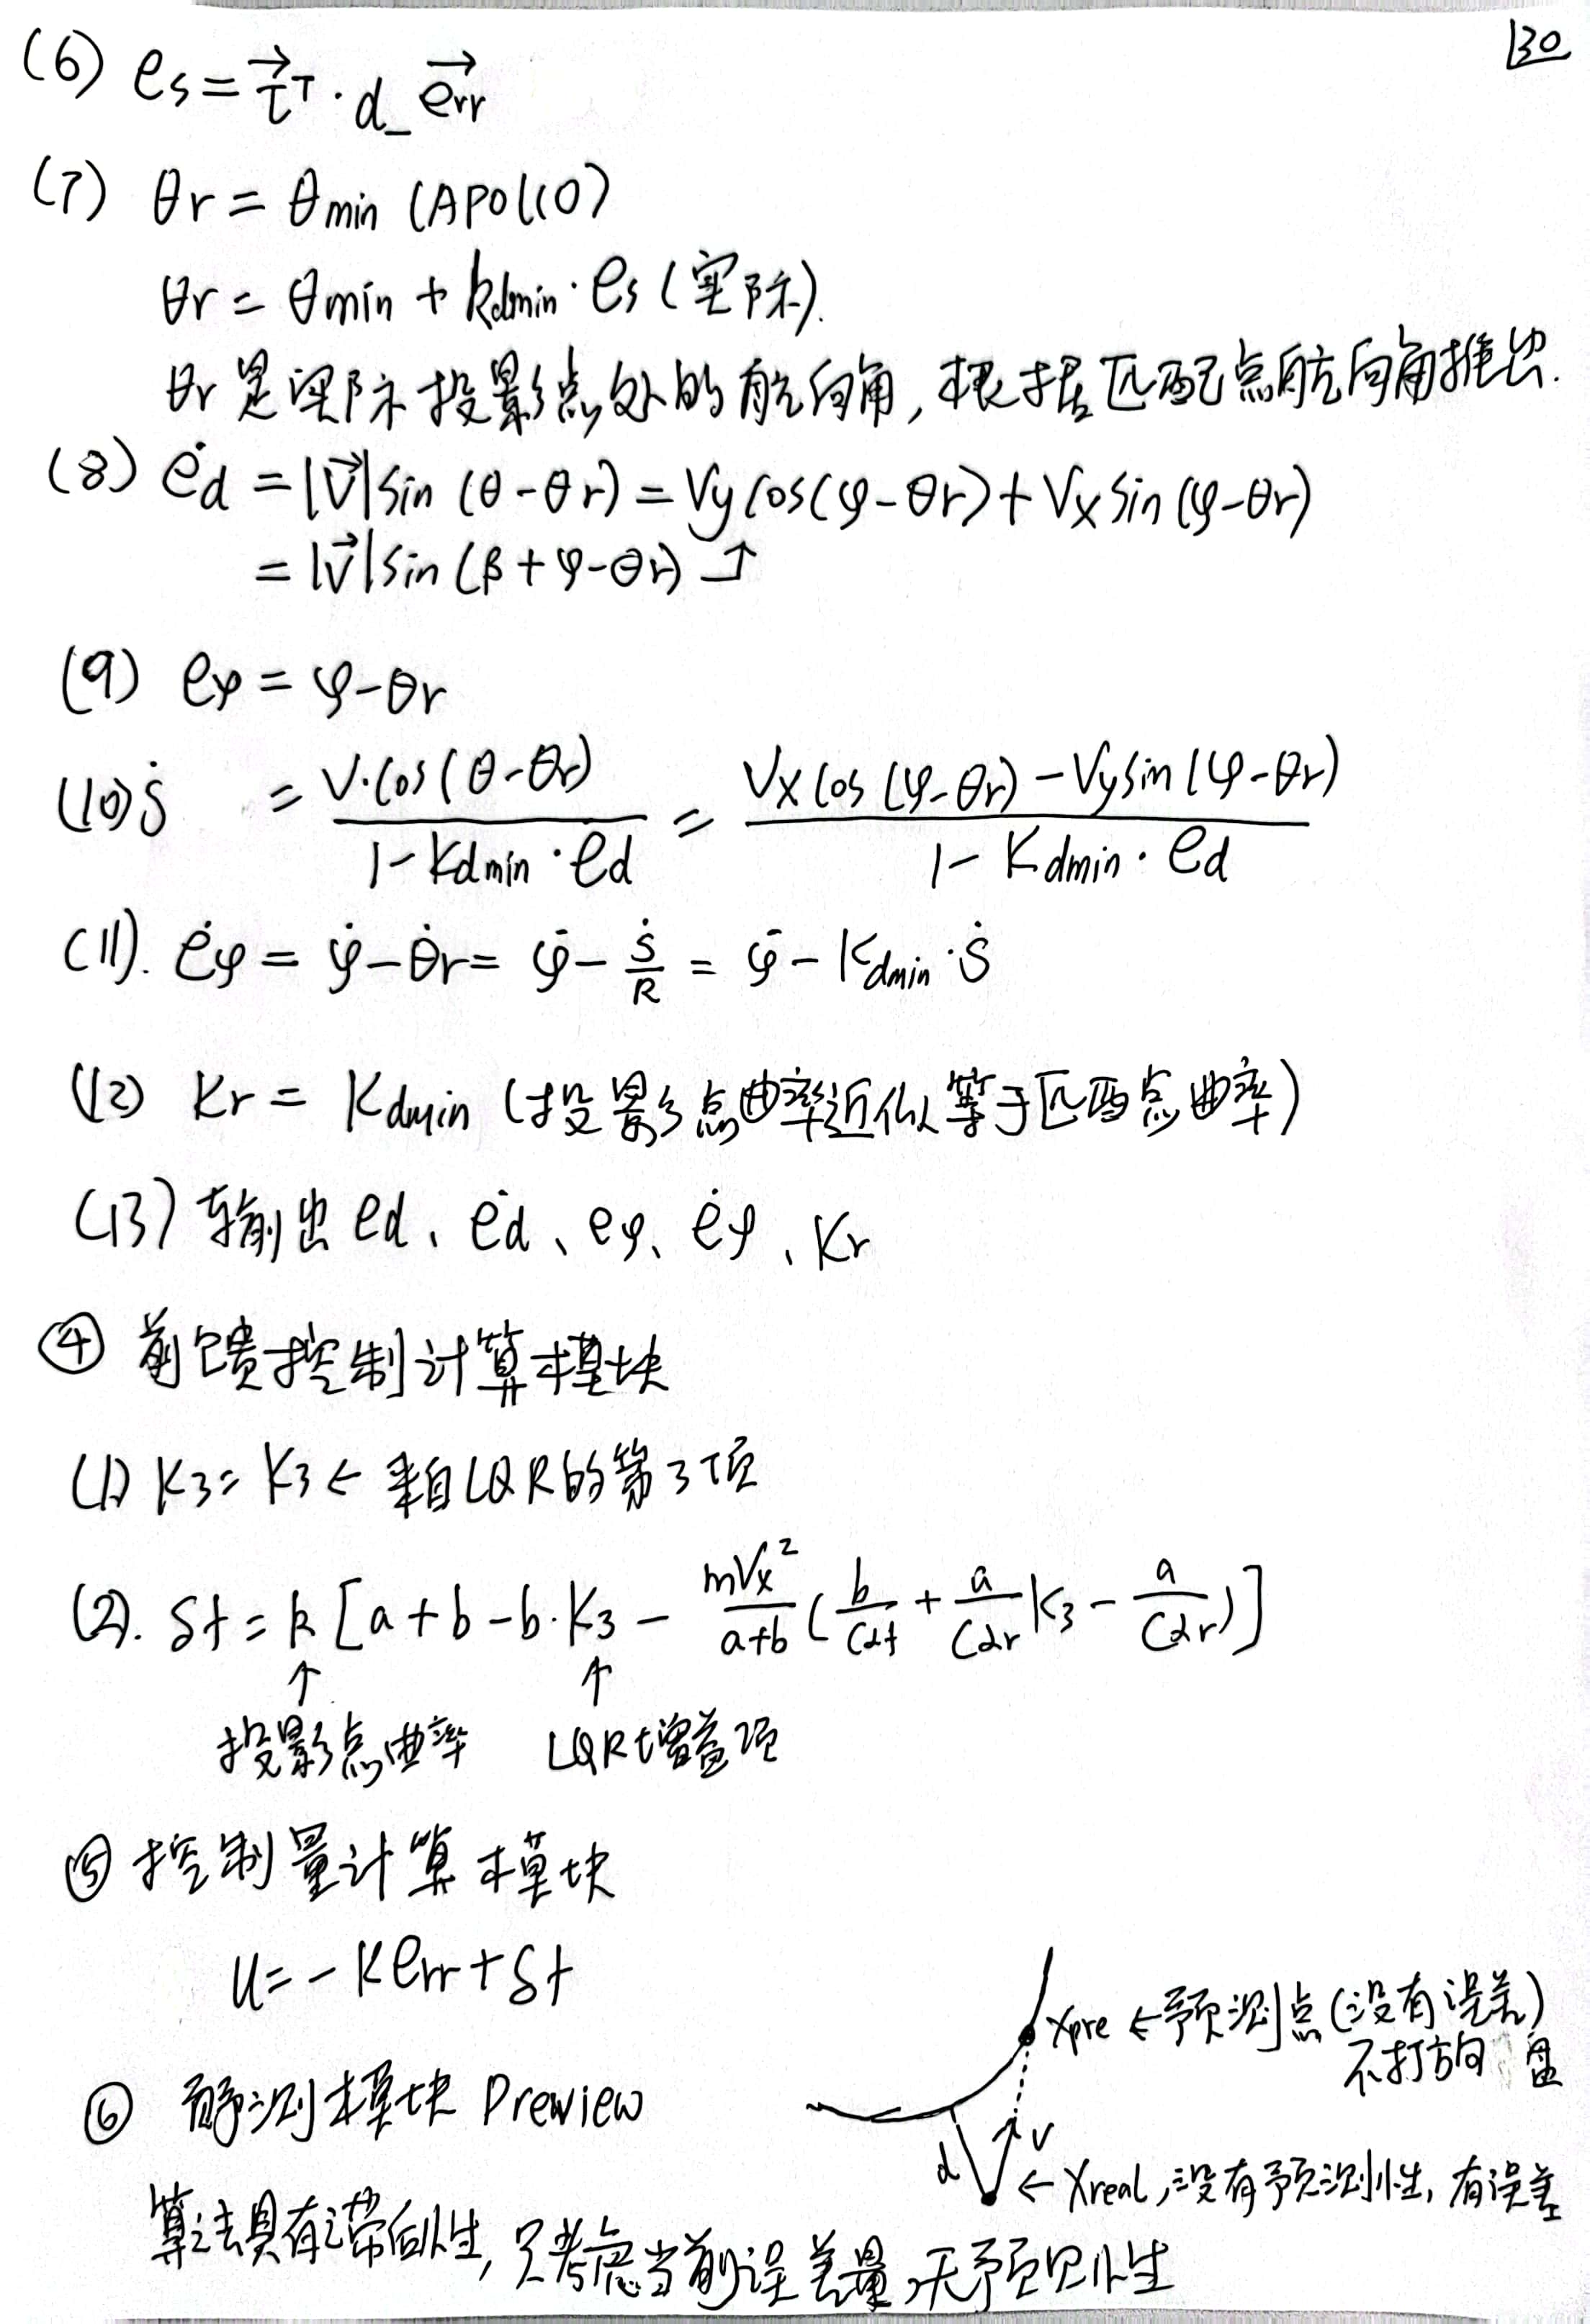 130
(6) es = τ⃗ᵀ · d_e⃗rr
(7) θr = θmin (APOllO)
θr = θmin + kdmin · es (实际).
θr 是实际投影点处的航向角, 根据匹配点航向角推出.
(8) ėd = |V⃗|sin(θ-θr) = Vy cos(φ-θr) + Vx sin(φ-θr)
= |V⃗|sin(β+φ-θr) ↑
(9) eφ = φ-θr
(10) ṡ = V·cos(θ-θr) / (1-Kdmin·ed) = (Vx cos(φ-θr) - Vy sin(φ-θr)) / (1-Kdmin·ed)
(11). ėφ = φ̇ - θ̇r = φ̇ - ṡ/R = φ̇ - Kdmin·ṡ
(12) Kr = Kdmin (投影点曲率近似等于匹配点曲率)
(13) 输出 ed、ėd、eφ、ėφ、Kr
④ 前馈控制计算模块
(1) K3 = K3 ← 来自LQR的第3项
(2). δf = k [a+b-b·K3 - mVx²/(a+b) (b/Cαf + a/Cαr K3 - a/Cαr)]
↑ ↑
投影点曲率 LQR增益项
⑤ 控制量计算模块
U = -Kerr + δf
Xpre ← 预测点 (没有误差)
不打方向盘
⑥ 预测模块 Preview
d V
← Xreal, 没有预测性, 有误差
算法具有滞后性, 只考虑当前误差量, 无预见性